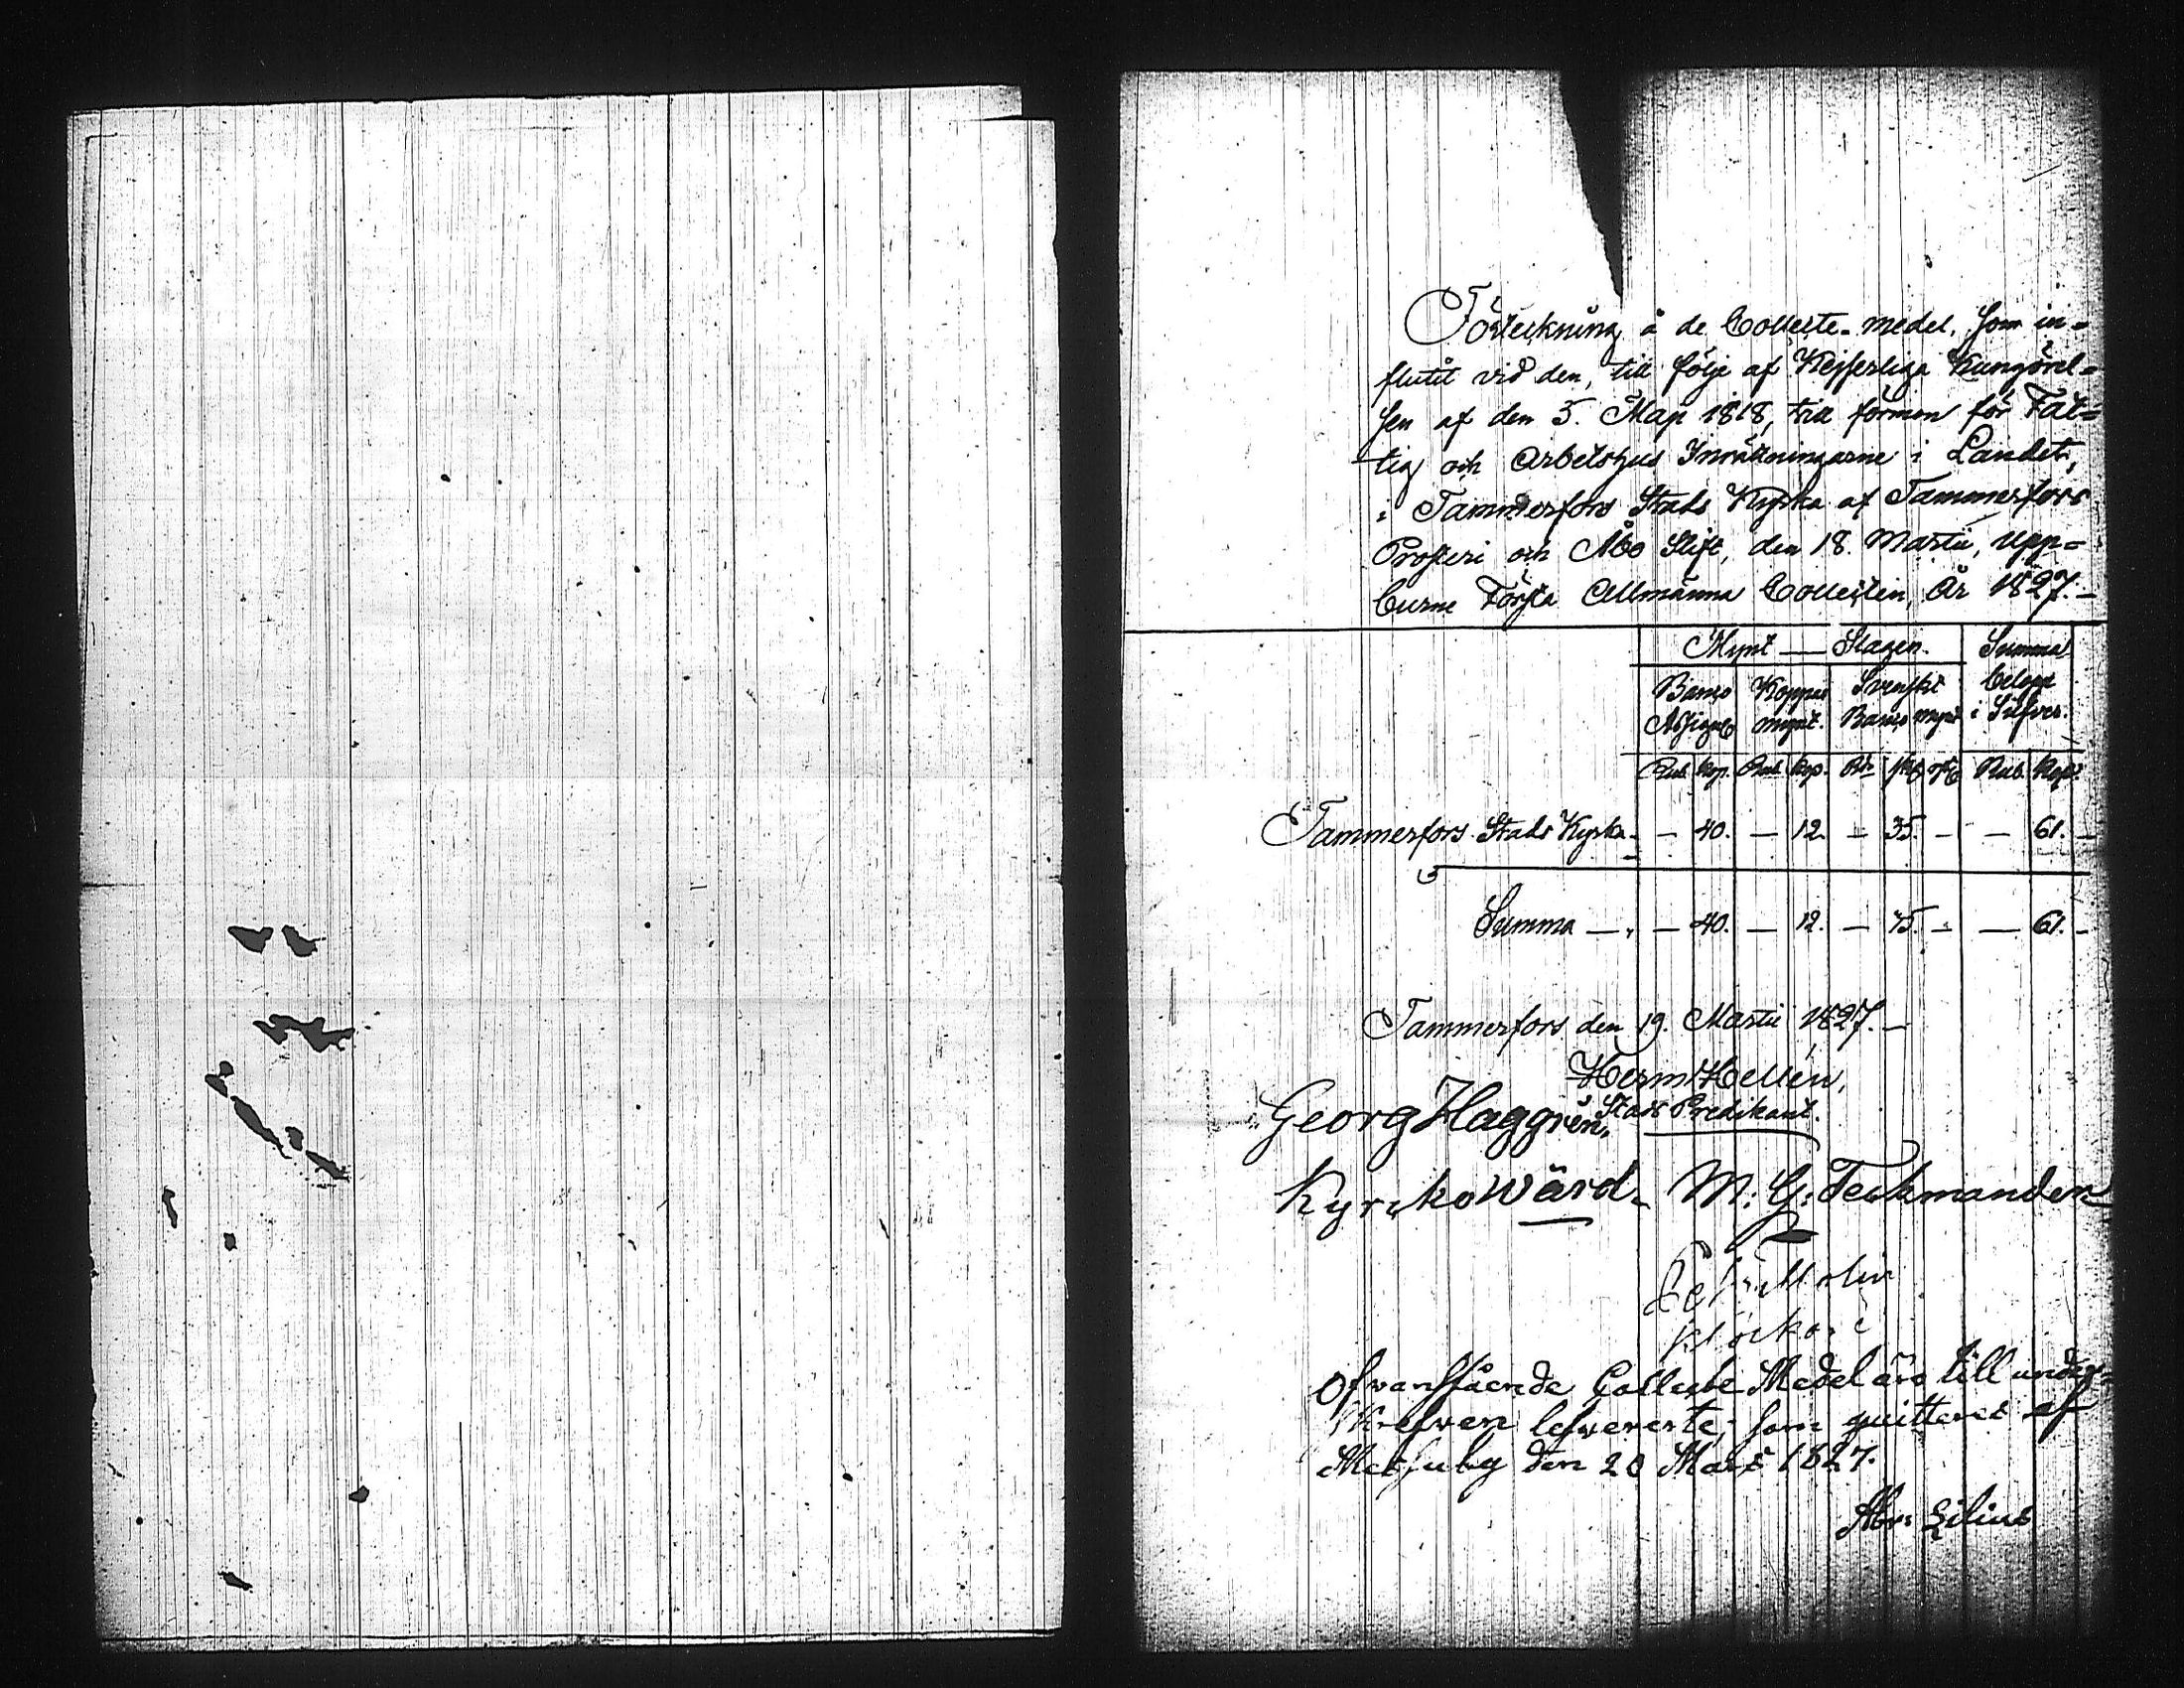 Förteckning å de Collecte-medel, som in-
flutit vid den, till följe af Kejserliga Kungörel-
sen af den 5. Maji 1818, till förmon för Fat-
tig och Arbetshus Inrättningarne i Landet,
i Tammerfors Stads Kyrka af Tammerfors
Prosteri och Åbo Stift, den 18. Martii, upp-
burne Första Allmänna Collecten, År 1827.-
Mynt — Slagen. Summa
Banco Koppar Svenskt belopp
Assignr mynt. Banco mynt i Silfver.
Rub. Kop. Rub. Kop. Rdr sk rst Rub. Kop.
Tammerfors Stads Kyrka - - 40. - 12. - 35. - - 61. -
Summa - - 40. - 12. - 35. - - 61. -
Tammerfors den 19. Martii 1827.-
Herm Hellén,
Stads Predikant.
Georg Haggrén,
Kyrkowärd. M: G: Teckmander
Molin
Klockare
Ofwanstående Collecte Medel äro till under-
skrefwen lefwererte, som quitteras af
Messuby den 20 Mars 1827.
Abr: Lilius